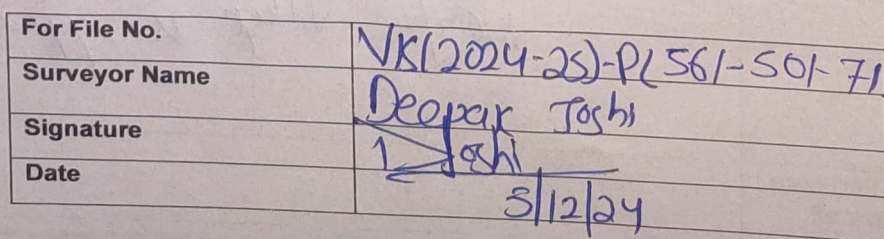 For File No. VK(2024-25)-PL561-501-71
Surveyor Name Deepak Joshi
Signature Joshi
Date 5/12/24